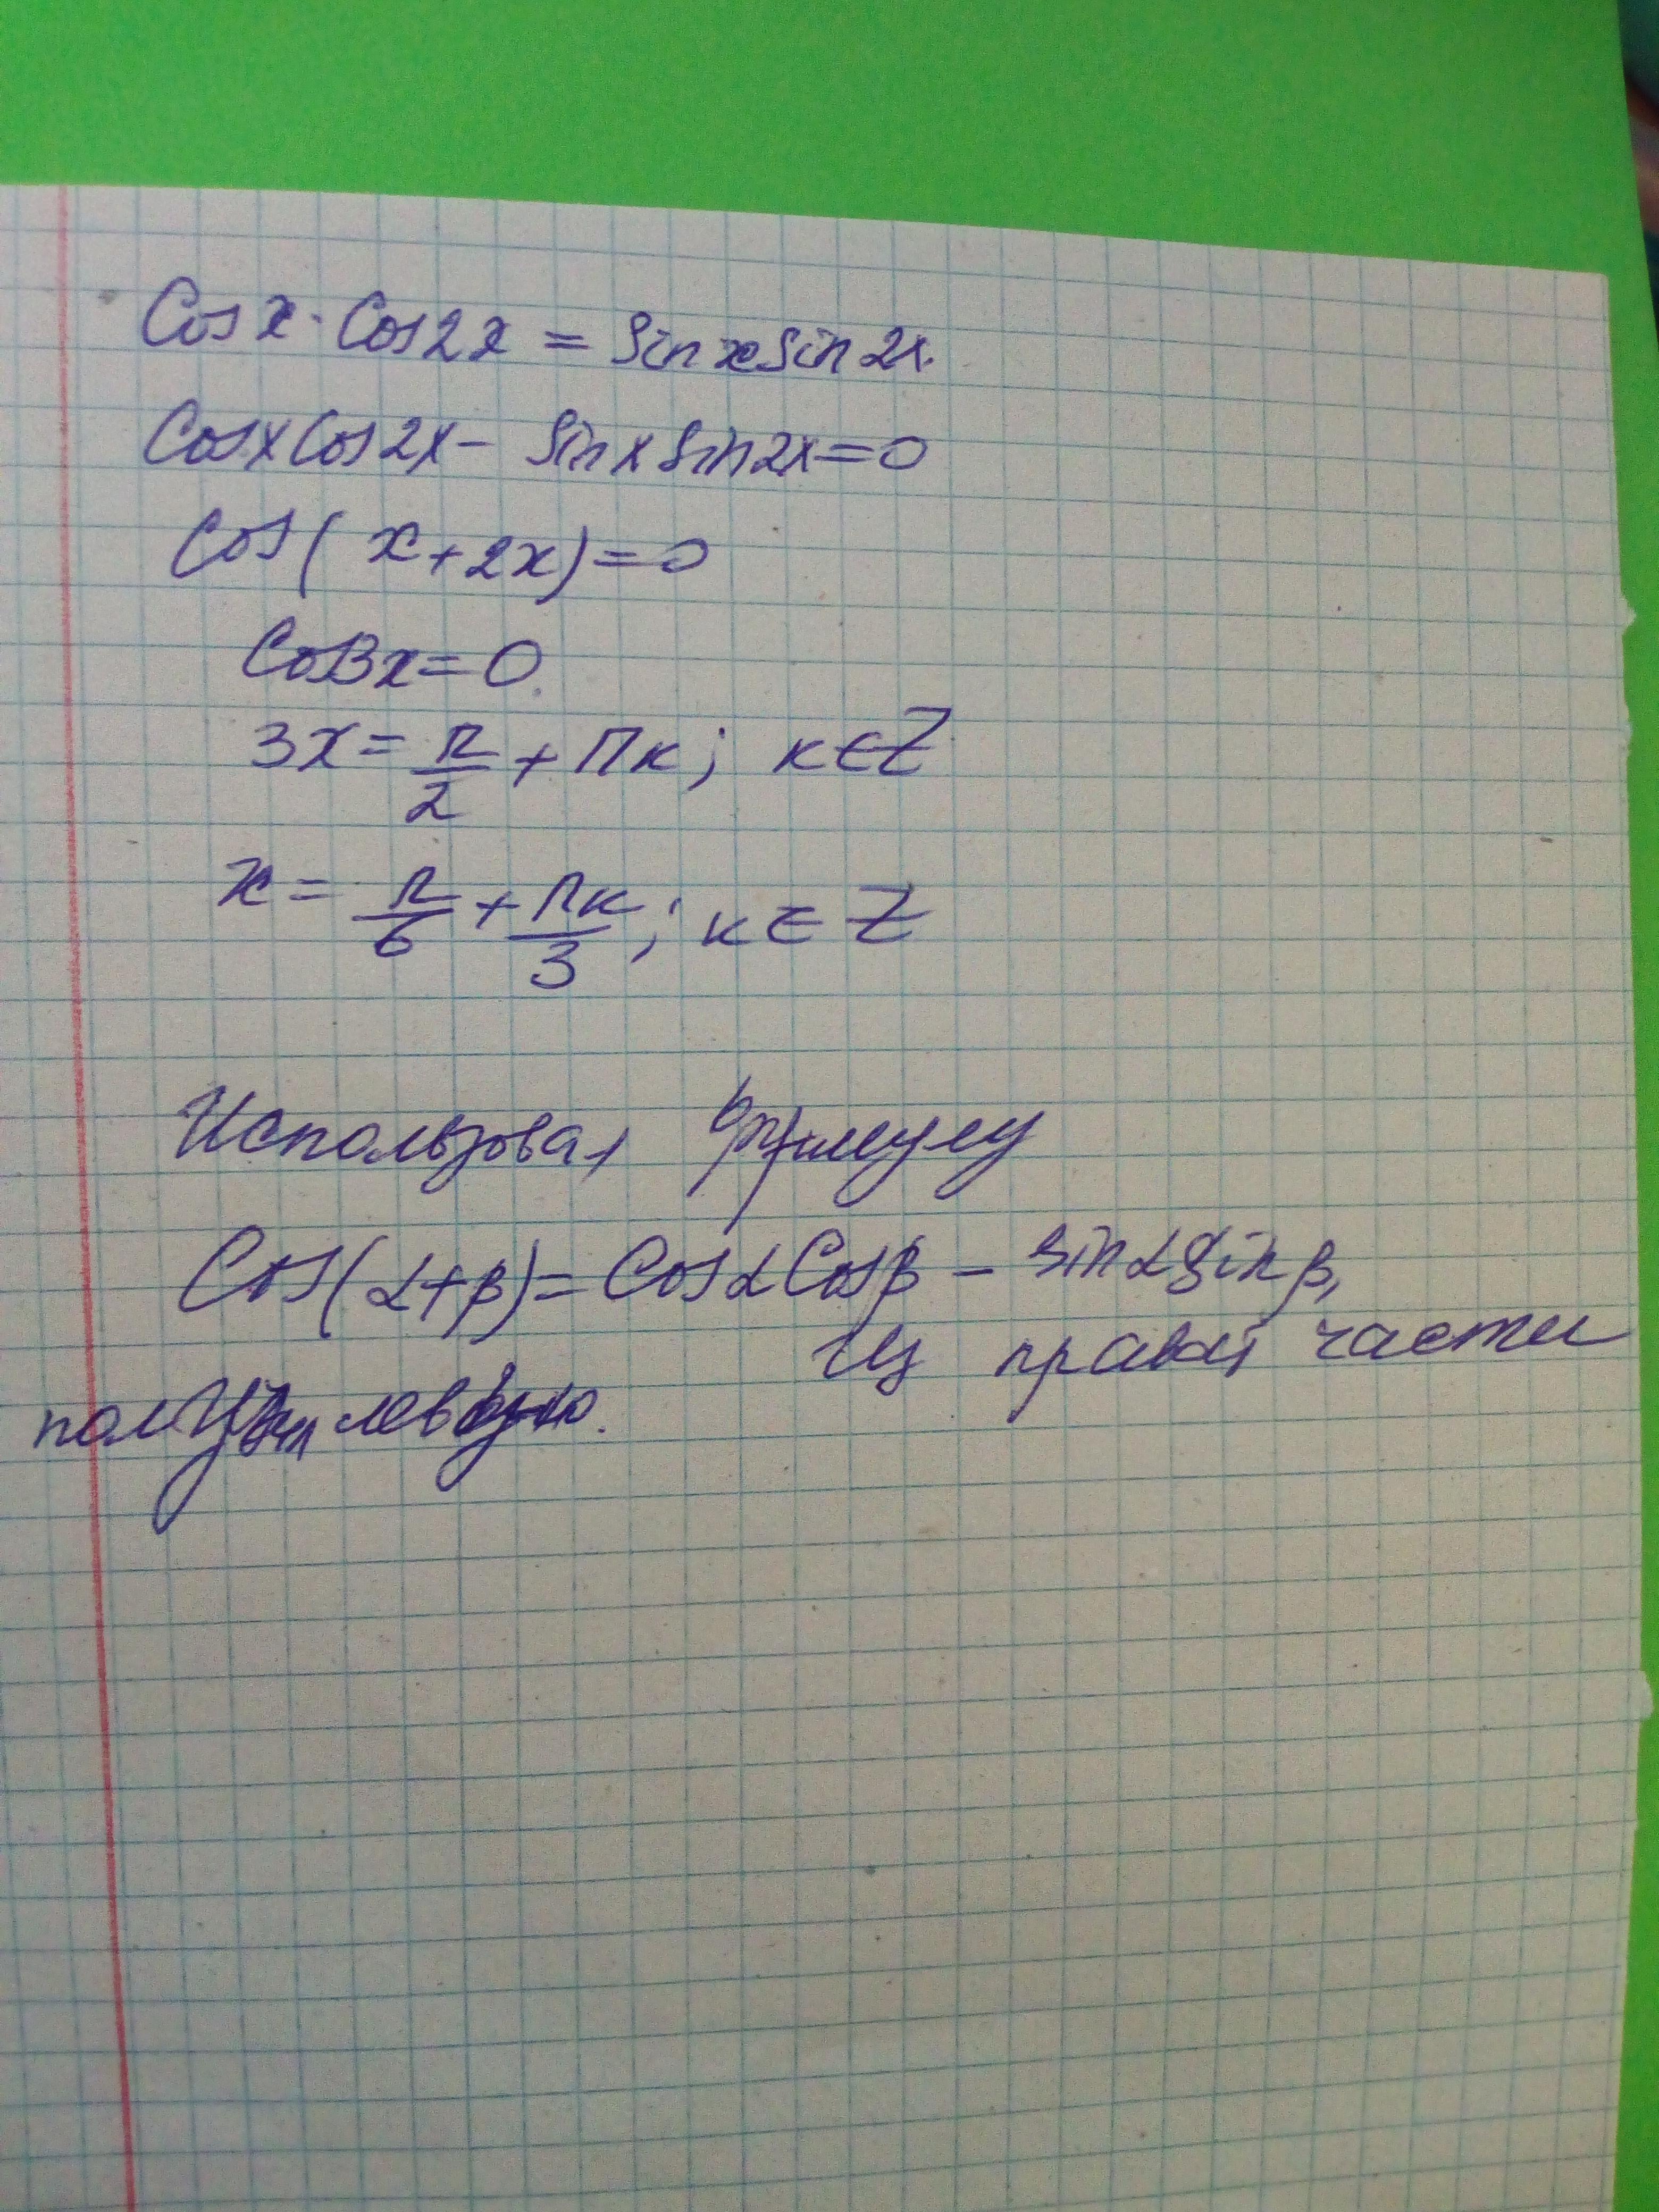 Cos x · Cos 2x = Sin x Sin 2x.
Cos x Cos 2x - Sin x Sin 2x = 0
Cos ( x + 2x ) = 0
Cos 3x = 0.
3x = π/2 + πк; к ∈ Z
x = π/6 + πк/3; к ∈ Z
Использовал формулу
Cos(α+β) = Cos α Cos β - Sin α Sin β,
Из правой части
получил левую.